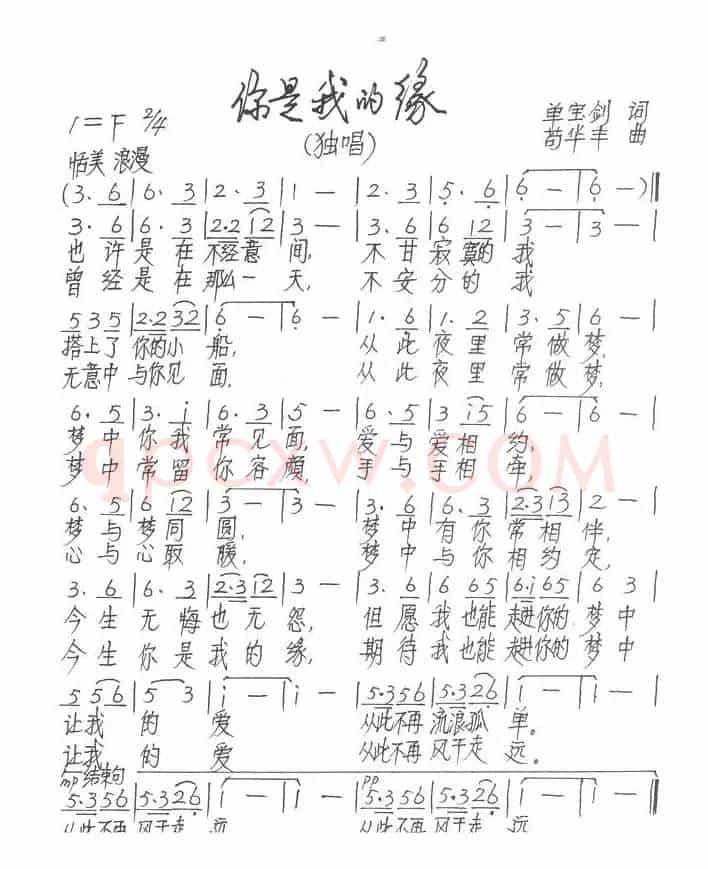 你是我的缘
(独唱)
1=F 2/4
单宝剑 词
苟华丰 曲
恬美 浪漫
(3. 6 | 6. 3 | 2. 3 | 1 — | 2. 3 | 5. 6 | 6 — | 6 —)‖
3. 6 | 6. 3 | 2·2 12 | 3 — | 3. 6 | 6 12 | 3 — | 3 — |
也许是在不经意间, 不甘寂寞的我
曾经是在那么一天, 不安分的我
5 3 5 | 2·2 32 | 6 — | 6 — | 1. 6 | 1. 2 | 3. 5 | 6 — |
搭上了你的小船, 从此夜里常做梦,
无意中与你见面, 从此夜里常做梦,
6. 5 | 3. i | 6. 3 | 5 — | 6. 5 | 3 i5 | 6 — | 6 — |
梦中你我常见面, 爱与爱相约,
梦中常留你容颜, 手与手相牵,
qpcxw.COM
6. 5 | 6 12 | 3 — | 3 — | 3. 6 | 6. 3 | 2·3 13 | 2 — |
梦与梦同圆, 梦中有你常相伴,
心与心取暖, 梦中与你相约定,
3. 6 | 6. 3 | 2·3 12 | 3 — | 3. 6 | 6 65 | 6·i 65 | 6 3 |
今生无悔也无怨, 但愿我也能走进你的梦中
今生你是我的缘, 期待我也能走进你的梦中
5 5 6 | 5 3 | i — | i — | 5·3 56 | 5·3 26 | i — | i — |
让我的爱 从此不再流浪孤单。
让我的爱 从此不再风干走远。
mp 结束句 pp
5·3 56 | 5·3 26 | i — | i — | 5·3 56 | 5·3 26 | i — | i — ‖
从此不再风干走远 从此不再风干走远